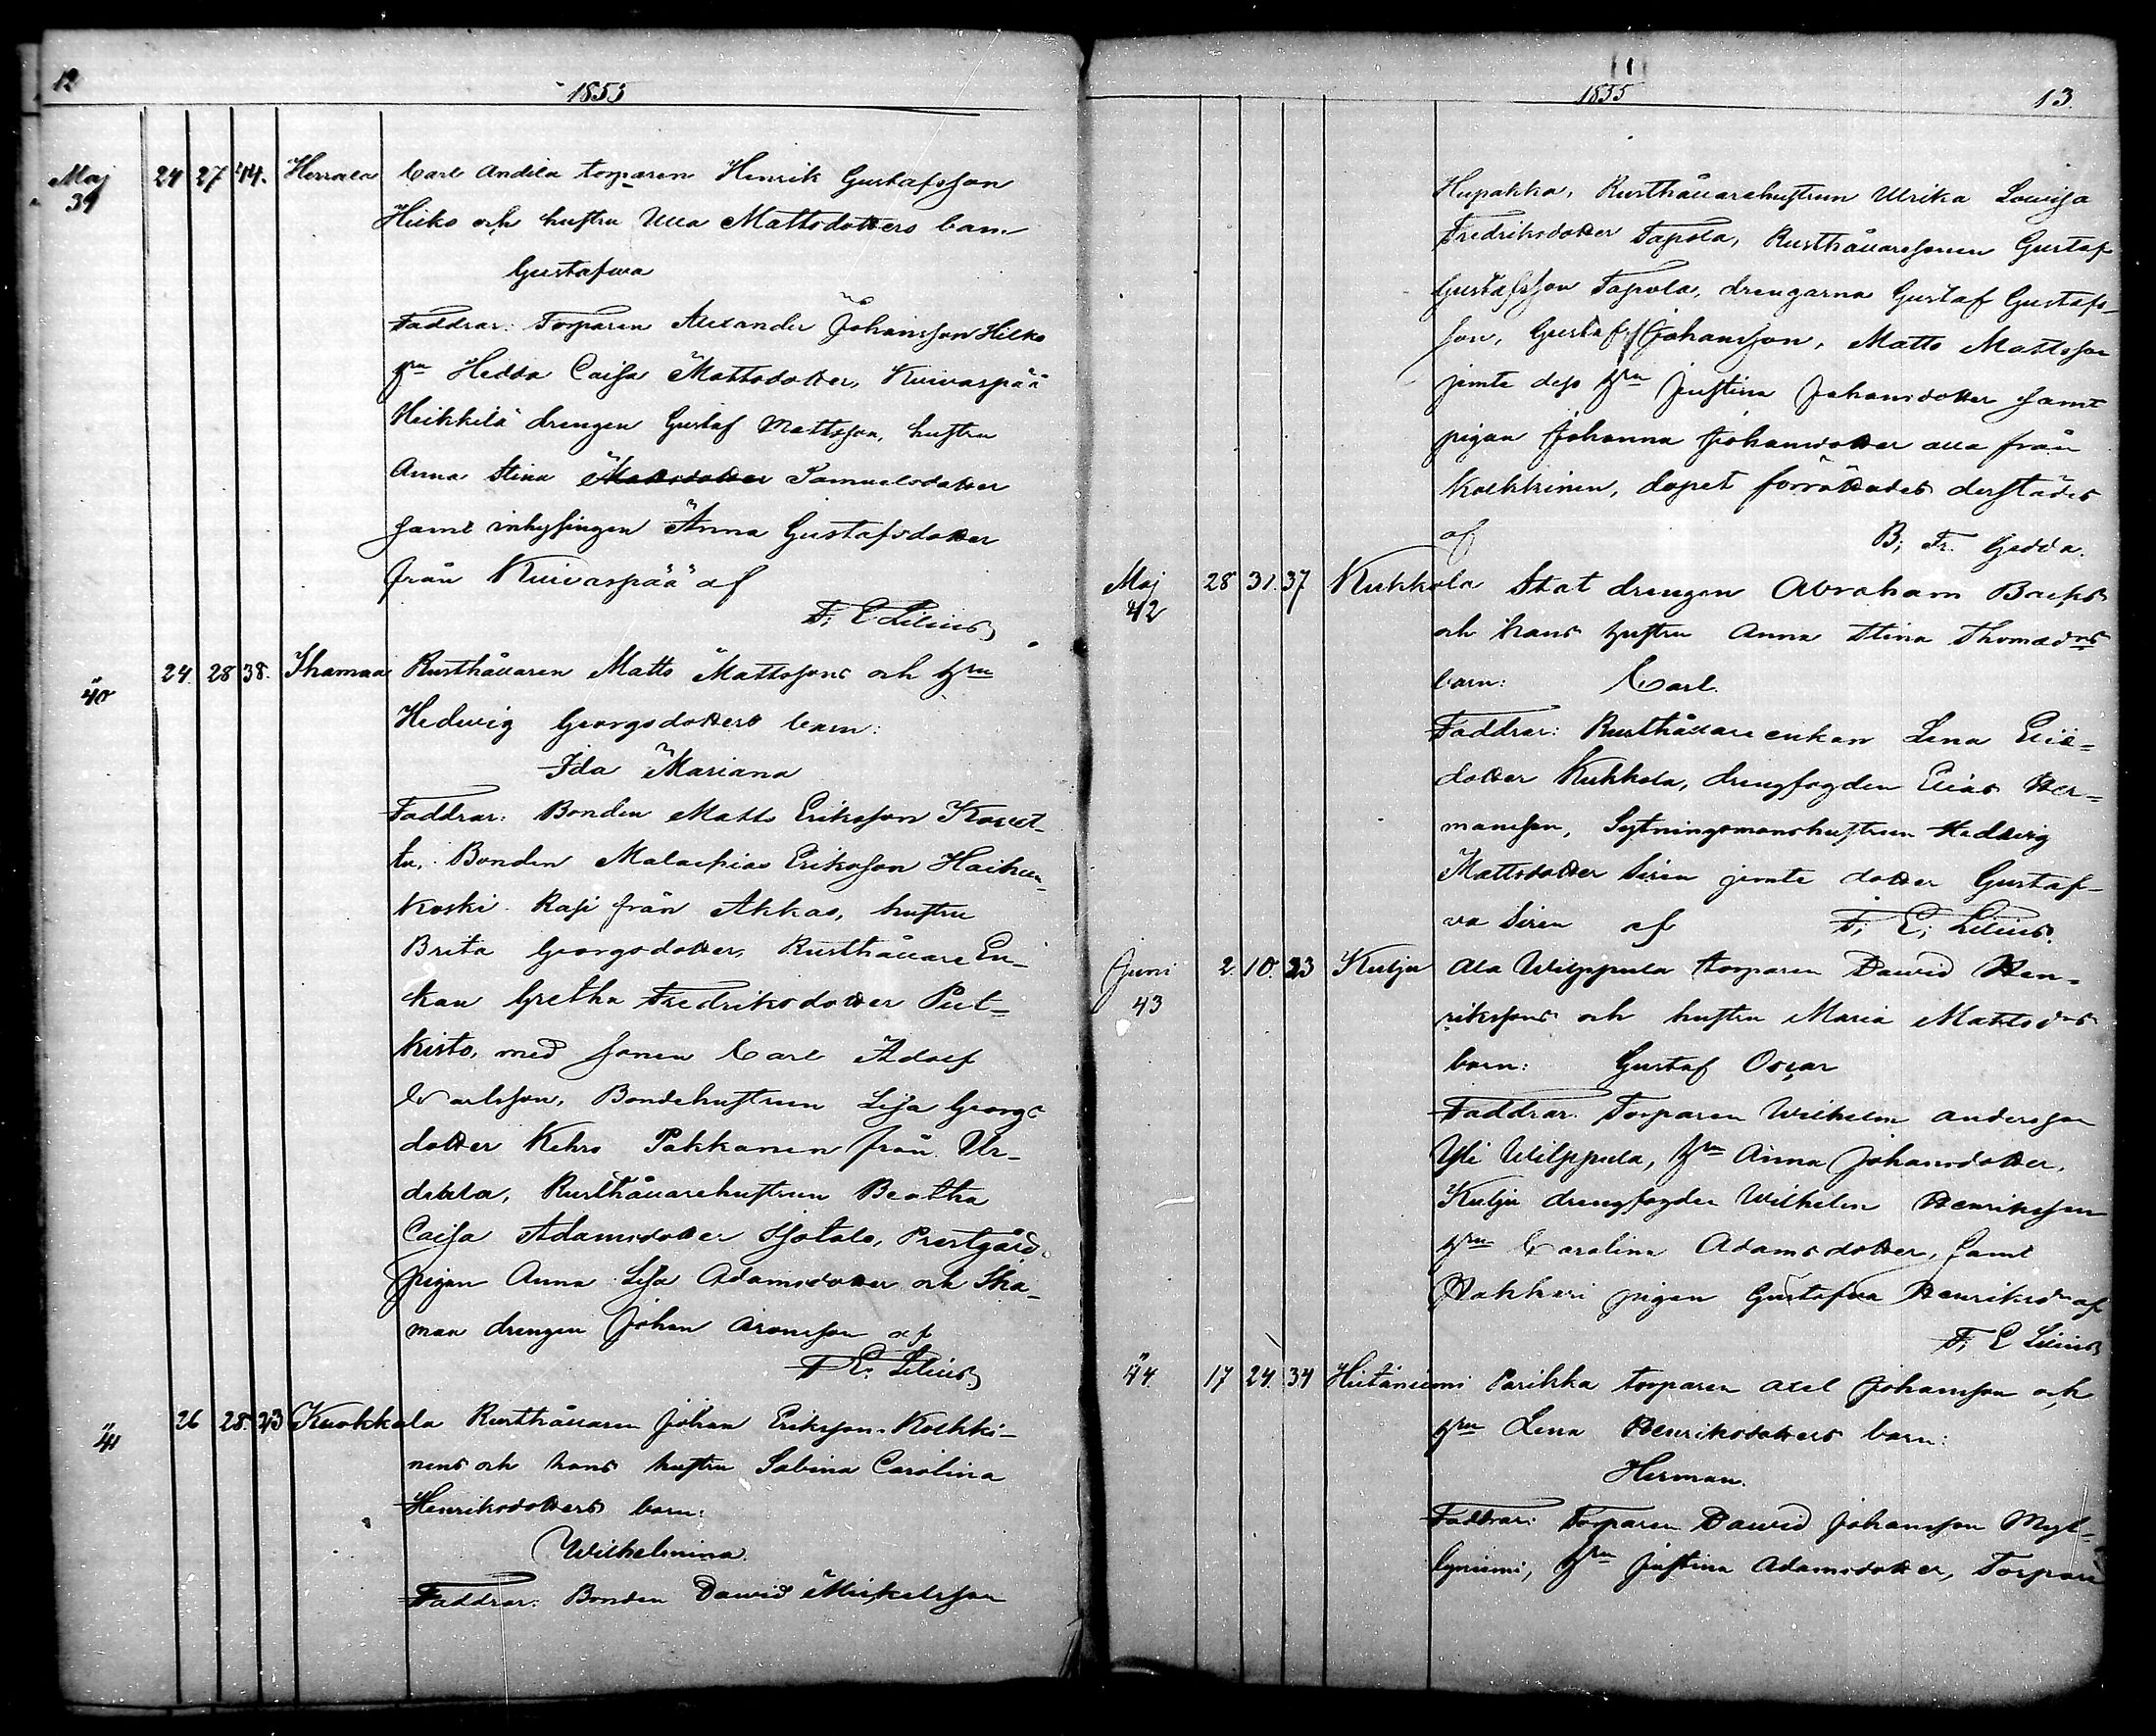 12
1855
Maj 24 27 44. Herrala Carl Andila torparen Henrik Gustafsson
39
Hilko och hustru Ulla Mattsdotters barn
Gustafwa
Faddrar: Torparen Alexander Johansson Hilko
hru Hedda Caisa Mattsdotter, Kuivaspää
Heikkilä drengen Gustaf Mattsson, hustru
Anna Stina Mattsdotter Samuelsdotter
samt inhysingen Anna Gustafsdotter
från Kuivaspää af
F. E. Lilius
" 24. 28 38. Ihamaa Rusthållaren Matts Mattssons och hru
40
Hedwig Georgsdotters barn:
Ida Mariana
Faddrar: Bonden Matts Eriksson
tu, Bonden Malachias Eriksson Haihun-
koski Rasi från Akkas, hustru
Brita Georgsdotter, Rusthållare En-
kan Gretha Fredriksdotter Put-
kisto, med sonen Carl Adolf
Carlsson, Bondehustrun Lisa Georgs
dotter Kehro Pakkanen från Ur-
diala, Rusthållarehustrun Beatha
Caisa Adamsdotter Isotalo, Prestgårds
pigan Anna Lisa Adamsdotter och Iha-
maa drengen Johan Aronsson af
F. E. Lilius
" 26 28. 23 Kuokkala Rusthållaren Johan Eriksson Kolkki-
41
nens och hans hustru Sabina Carolina
Henriksdotters barn:
Wilhelmina
Faddrar: Bonden Dawid Mickelsson
1855
13.
Hupakka, Rusthållarehustrun Ulrika Lowisa
Fredriksdotter Tapola, Rusthållaresonen Gustaf
Gustafsson Tapola, drengarna Gustaf Gustafs-
son, Gustaf Johansson, Matts Mattsson
jemte dess hru Justina Johansdotter samt
pigan Johanna Johansdotter alla från
Kolkkinen, dopet förrättades derstädes
af B; Fr. Gedda.
Maj 28 31. 37 Kukkola Stat drengen Abraham Backs
42
och hans hustru Anna Stina Thomasdrs
barn: Carl.
Faddrar: Rusthållare enkan Lena Elias-
dotter Kukkola, drengfogden Elias Her-
mansson, Sytningsmanshustrun Hedwig
Mattsdotter Siren jemte dotter Gustaf-
va Siren af F. E; Lilius.
Juni 2. 10. 23 Kulju Ala Wilppula torparen Dawid Hen-
43
rikssons och hustru Maria Mattsdrs
barn: Gustaf Oscar
Faddrar. Torparen Wilhelm Andersson
Yli Wilppula, hru Anna Johansdotter,
Kulju drengfogden Wilhelm Henriksson
hru Carolina Adamsdotter, samt
Hakkeri pigan Gustafwa Henriksdr af
F; E Lilius
" 17 24. 34 Hiitaniemi Parikka torparen Axel Johansson och
44.
hru Lena Henriksdotters barn:
Herman.
Faddrar: Torparen Dawid Johansson Myl-
lyniemi, hru Justina Adamsdotter, Torpare